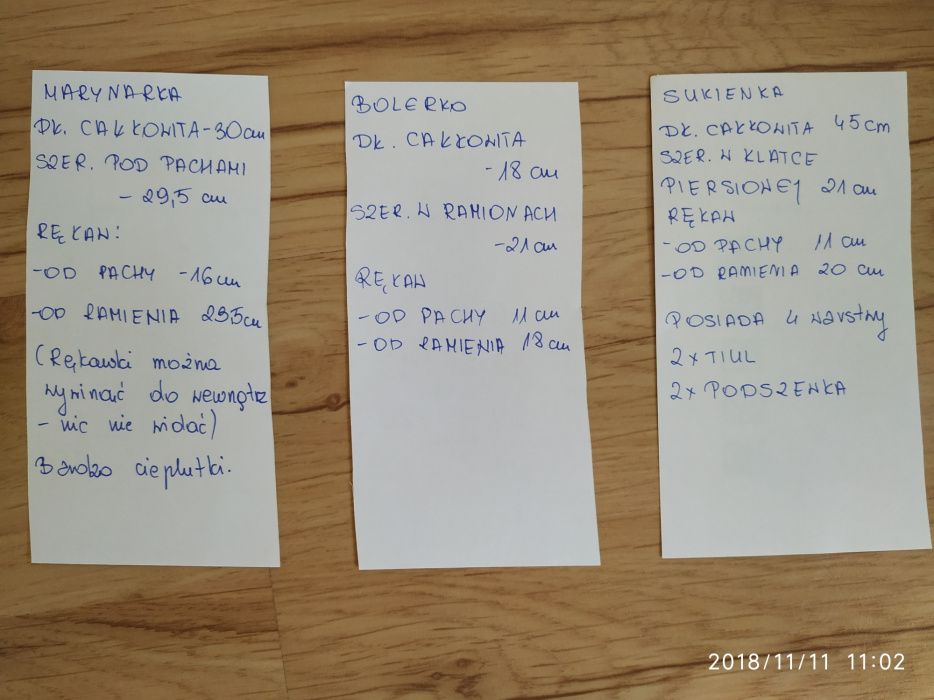 MARYNARKA
DŁ. CAŁKOWITA - 30 cm
SZER. POD PACHAMI
- 29,5 cm
RĘKAW:
- OD PACHY - 16 cm
- OD RAMIENIA 29,5 cm
(Rękawki można
wywinąć do wewnątrz
- nic nie widać)
Bardzo cieplutki.
BOLERKO
DŁ. CAŁKOWITA
- 18 cm
SZER. W RAMIONACH
- 21 cm
RĘKAW
- OD PACHY 11 cm
- OD RAMIENIA 18 cm
SUKIENKA
DŁ. CAŁKOWITA 45 cm
SZER. W KLATCE
PIERSIOWEJ 21 cm
RĘKAW
- OD PACHY 11 cm
- OD RAMIENIA 20 cm
POSIADA 4 warstwy
2x TIUL
2x PODSZEWKA
2018/11/11 11:02